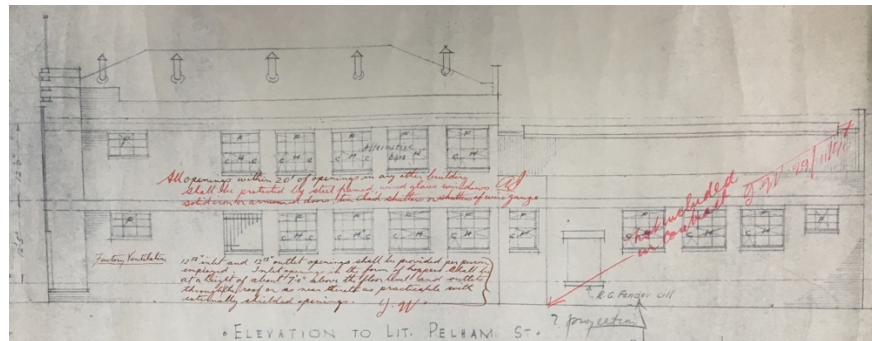 All openings within 20' of openings in any other building
shall be protected by steel framed, wired glass windows
solid iron or armoured doors, tin clad shutters or shutters of wire gauge
Not included
in contract
29/11/40
Alternative
Factory Ventilation
12" inlet and 12" outlet openings shall be provided per person
employed. Inlet openings in the form of hoppers shall be
at a height of about 7'0" above the floor level and outlets
through the roof or as near thereto as practicable with
externally shielded openings.
R.G. Fender all
? projection
• ELEVATION TO LIT. PELHAM ST •